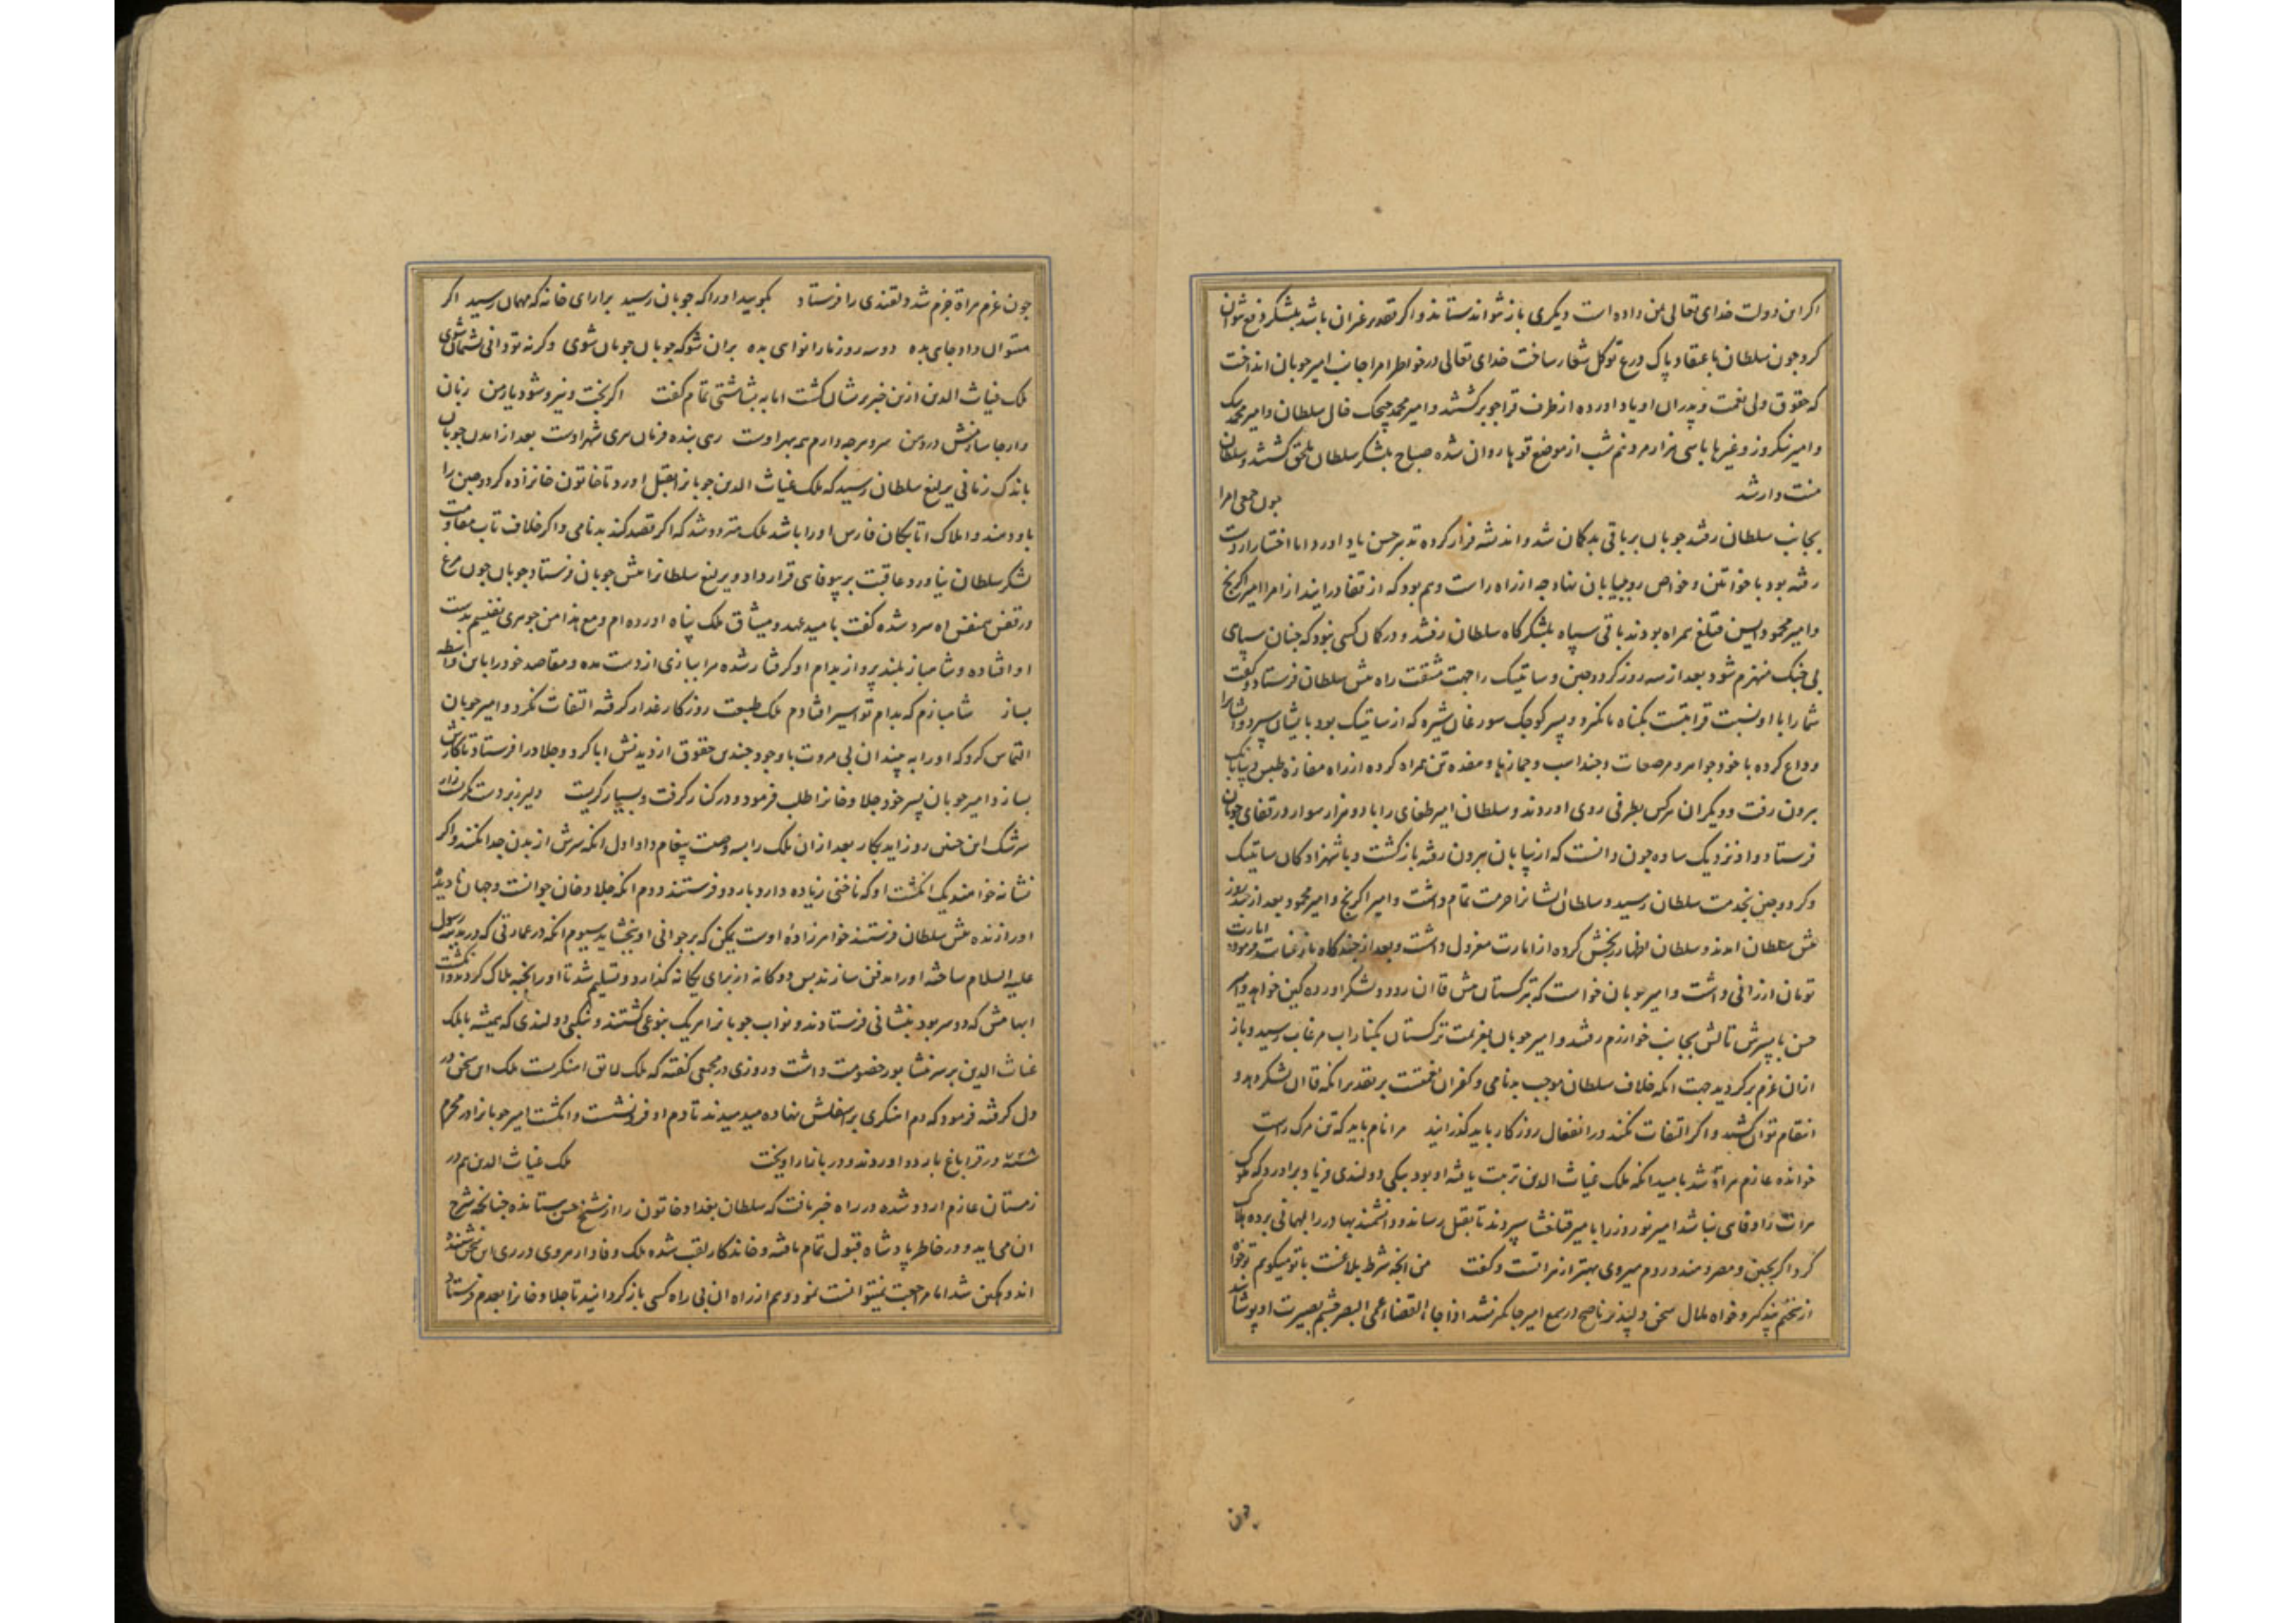 اکر این دولت خدای تعالی بمن داده است دیکری باز نتواند ستاند و اکر تقدیر غیر ان باشد بلشکر دفع نتوان
کرد چون سلطان باعتقاد پاک درع توکل شعار ساخت خدای تعالی در خواطر امرا جانب امیر جوبان انداخت
که حقوق ولی نعمت و پدران او یاد اورده از طرف قراجو برکشتند و امیر محمد چیچک خال سلطان و امیر محمد بیک
و امیر نیکروز و غیرها با سی هزار مرد نیم شب از موضع قوها روان شده صباح بلشکر سلطان ملحق کشتند و سلطان
منت دار شد چون جمعی امرا
بجانب سلطان رفتند جوبان بر باقی بدکمان شد و اندیشه فرار کرده تدبیر حسن یاد اورد اما اختیار از دست
رفته بود با خواتین و خواص رو به بیابان نهاد چه از راه راست وهم بود که از قفا درایند از امرا امیر اکرنج
و امیر محمود ایسن قتلغ همراه بودند باقی سپاه بلشکرکاه سلطان رفتند و در کمان کسی نبود که چنان سپاهی
بی جنک منهزم شود بعد از سه روز کردوجین و ساتیبک را جهت مشقت راه پیش سلطان فرستاد و کفت
شما را با او نسبت قرابتست بکناه ما نکیرد و پسر کوچک سورغان شیره که از ساتیبک بود بایشان سپرد و ایشانرا
وداع کرده با خود جواهر و مرصعات و چند اسب و جمازها و هفده تن همراه کرده از راه مفازه طبس به بیابان
بیرون رفت و دیکران هرکس بطرفی روی اوردند و سلطان امیر طغای را با دو هزار سوار در قفای جوبان
فرستاد و او نزدیک ساوه چون دانست که از بیابان بیرون رفته بازکشت و با شهزادکان ساتیبک
و کردوجین بخدمت سلطان رسید و سلطان ایشانرا حرمت تمام داشت و امیر اکرنج و امیر محمود بعد از چند روز
پیش سلطان امدند و سلطان اظهار بخش کرده از امارت معزول داشت و بعد از چند کاه باز عنایت فرموده امارت
تومان ارزانی داشت و امیر جوبان خواست که بترکستان پیش قاان رود و لشکر اورده کین خواهد و امیر
حسن با پسرش تالش بجانب خوارزم رفتند و امیر جوبان بعزیمت ترکستان بکنار اب مرغاب رسید و باز
ازان عزم برکردید جهت انکه خلاف سلطان موجب بدنامی و کفران نعمتست بر تقدیر انکه قاان لشکر دهد و
انتقام توان کشید و اکر التفات نکند در انفعال روزکار باید کذرانید مرا نام باید که تن مرک راست
خوانده عازم هراة شد بامید انکه ملک غیاث الدین تربیت یافته او بود بیکی دولندی فریاد براورد که ملوک
هرات را وفای نباشد امیر نوروز را بامیر قتلغشا سپردند تا بقتل رساند و دانشمند بهادر را بمهمانی برده هلاک
کرد اکر بچین و مصر و هند و روم میروی بهتر از هراتست و کفت من انچه شرط بلاغست با تو میکویم تو خواه
از سخنم پند کیر و خواه ملال سخن دلپذیر ناصح در سمع امیر جایکیر نشد اذا جاء القضاء عمی البصر چشم بصیرت او پوشانید
چون
چون عزم هراة جزم شد دلقندی را فرستاد بکویید او را که جوبان رسید برارای خانه که مهمان رسید اکر
میتوان داد جای بده دو سه روز مارا نوای بده بران شو که جوبان جوبان شوی وکرنه تو دانی پشیمان شوی
ملک غیاث الدین ازین خبر پریشان کشت اما به بشاشتی تمام کفت اکر بخت و نیرو شود یار من زبان
دارد جا سازمش در وثن سر و هرچه دارم همه بهر اوست رهی بنده فرمان هری شهر اوست بعد از امدن جوبان
باندک زمانی یرلیغ سلطان رسید که ملک غیاث الدین جوبانرا بقتل اورد تا خاتون خانزاده کردوجین را
باو دهند و املاک اتابکان فارس او را باشد ملک متردد شد که اکر قصد کند بدنامی و اکر خلاف تاب مقاومت
لشکر سلطان نیاورد عاقبت بر بیوفای قرار داد و یرلیغ سلطانرا پیش جوبان فرستاد جوبان چون مرغ
در قفس همنفس اه سرد شده کفت بامید عهد و میثاق ملک پناه اورده ام و مع هذا من جوهری نفیسم بدست
او افتاده و شاهباز بلند پرواز بدام او کرفتار شده مرا ببازی از دست مده و مقاصد خود را باین واسطه
بساز شاهبازم که بدام تو اسیر افتادم ملک طبیعت روزکار غدار کرفته التفات نکرد و امیر جوبان
التماس کرد که او را به بیند ان بی مروت با وجود چندین حقوق از دیدنش ابا کرد و جلاد را فرستاد تا کارش
بسازد امیر جوبان پسر خود جلاوخانرا طلب فرمود و در کنار کرفت و بسیار کریست
سرشک این چنین روز اید بکار بعد ازان ملک را بسه وصیت پیغام داد اول انکه سرش از بدن جدا نکند و اکر
نشانه خواهند یک انکشت او که ناخنی زیاده دارد باردو فرستند دوم انکه جلاوخان جوانست و جهان نادیده
او را زنده پیش سلطان فرستند خواهرزاده اوست یمکن که بر جوانی او بخشاید سیوم انکه در عمارتی که در مدینه رسول
علیه السلام ساخته او را دفن سازند پس دوکانه از برای یکانه کذارد و تسلیم شد تا او را بخبه هلاک کردند و انکشت
ابهامش که دو سر بود بنشانی فرستادند و نواب جوبانرا هریک بنوعی کشتند و بیکی دولندی که همیشه با ملک
غیاث الدین بر سر نیشابور خصومت داشت و روزی در مجمعی کفته که ملک لایق اهنکریست ملک این سخن در
دل کرفته فرمود که دم اهنکری بر اسفلش نهاده میدمیدند تا دم او فرو نشست و انکشت امیر جوبانرا در محرم
سنه ۷۲۸ در قراباغ باردو اوردند و در بازار اویخت ملک غیاث الدین هم در
زمستان عازم اردو شده در راه خبر یافت که سلطان بغداد خاتون را از شیخ حسن ستانده چنانچه شرح
ان می اید و در خاطر پادشاه قبول تمام یافته و خاندکار لقب شده ملک وفادار هروی در ری این سخن شنیده
اندوهکین شد اما مراجعت نمیتوانست نمود و هم از راه ان بی راه کسی باز کردانید تا جلاوخانرا بعدم فرستاد